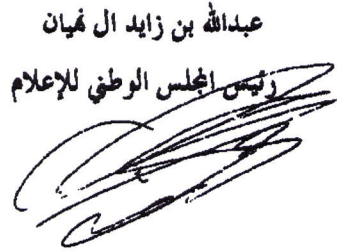 عبدالله بن زايد ال نهيان
رئيس المجلس الوطني للإعلام